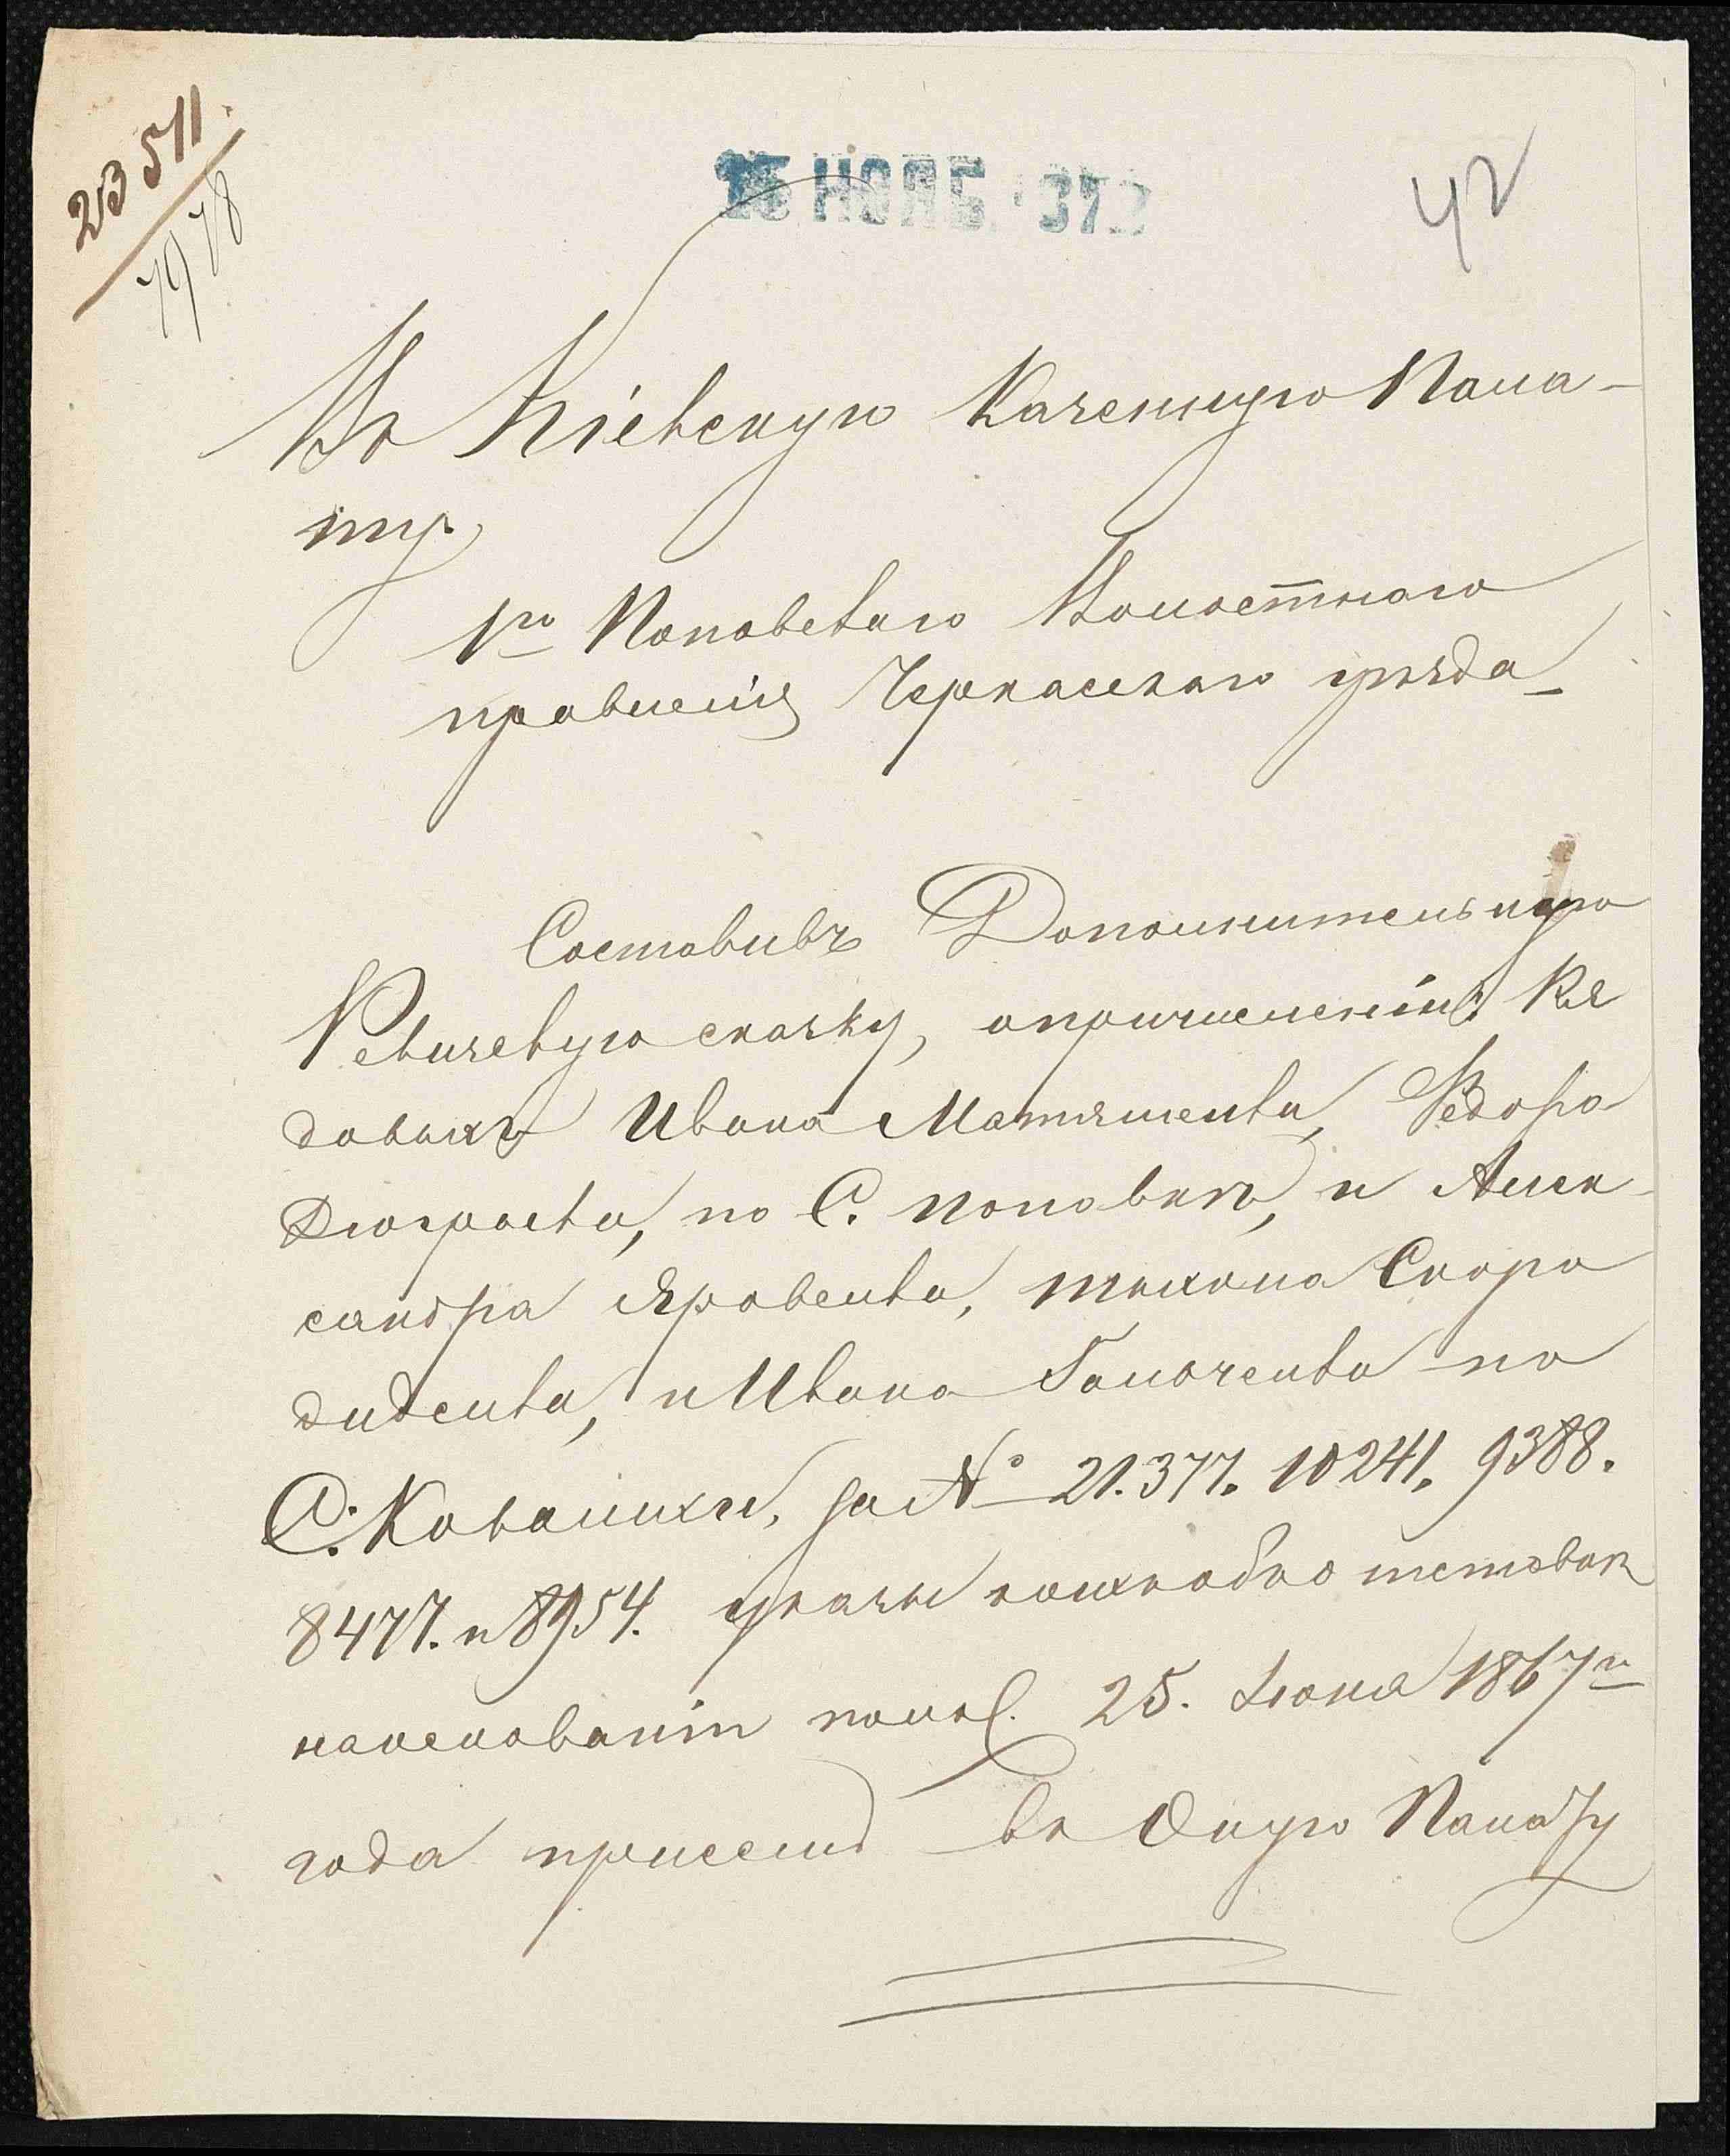 23511
1978
15 НОЯБ. 187
42
Въ Кіевскую Казенную Пала-
ту.
1го Поповскаго Волостного
правленія Черкасскаго уѣзда
Составивъ Дополнительную
Ревизскую сказку, опричисленіи Ря
довыхъ Ивана Матяшенка, Федора
Дюгроста, по С. Поповкѣ, и Алек
сандра Яровенка, Тихона Скоро
диденка, и Ивана Гальченка по
С. Ковалихи, за № 21.377. 10241. 9388.
8477. и 8954. указы
на основаніи полож. 25. Іюня 1867го
года при семъ въ Оную Палату